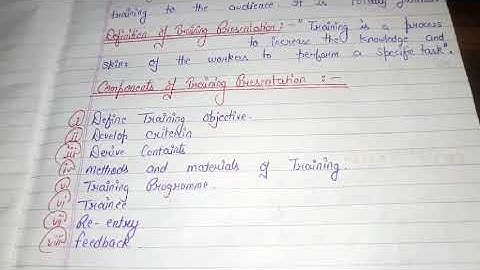 training to the audience. It is
Definition of Training Presentation :- "Training is a process
to increase the Knowledge and
skills of the workers to perform a specific task".
Components of Training Presentation :-
i Define Training objective.
ii Develop criterion
iii Derive Containts
iv methods and materials of Training.
v Training Programme.
vi Trainee
vii Re-entry
viii feedback